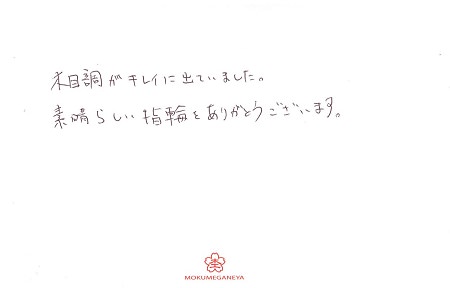 木目調がキレイに出ていました。
素晴らしい指輪をありがとうございます。
MOKUMEGANEYA